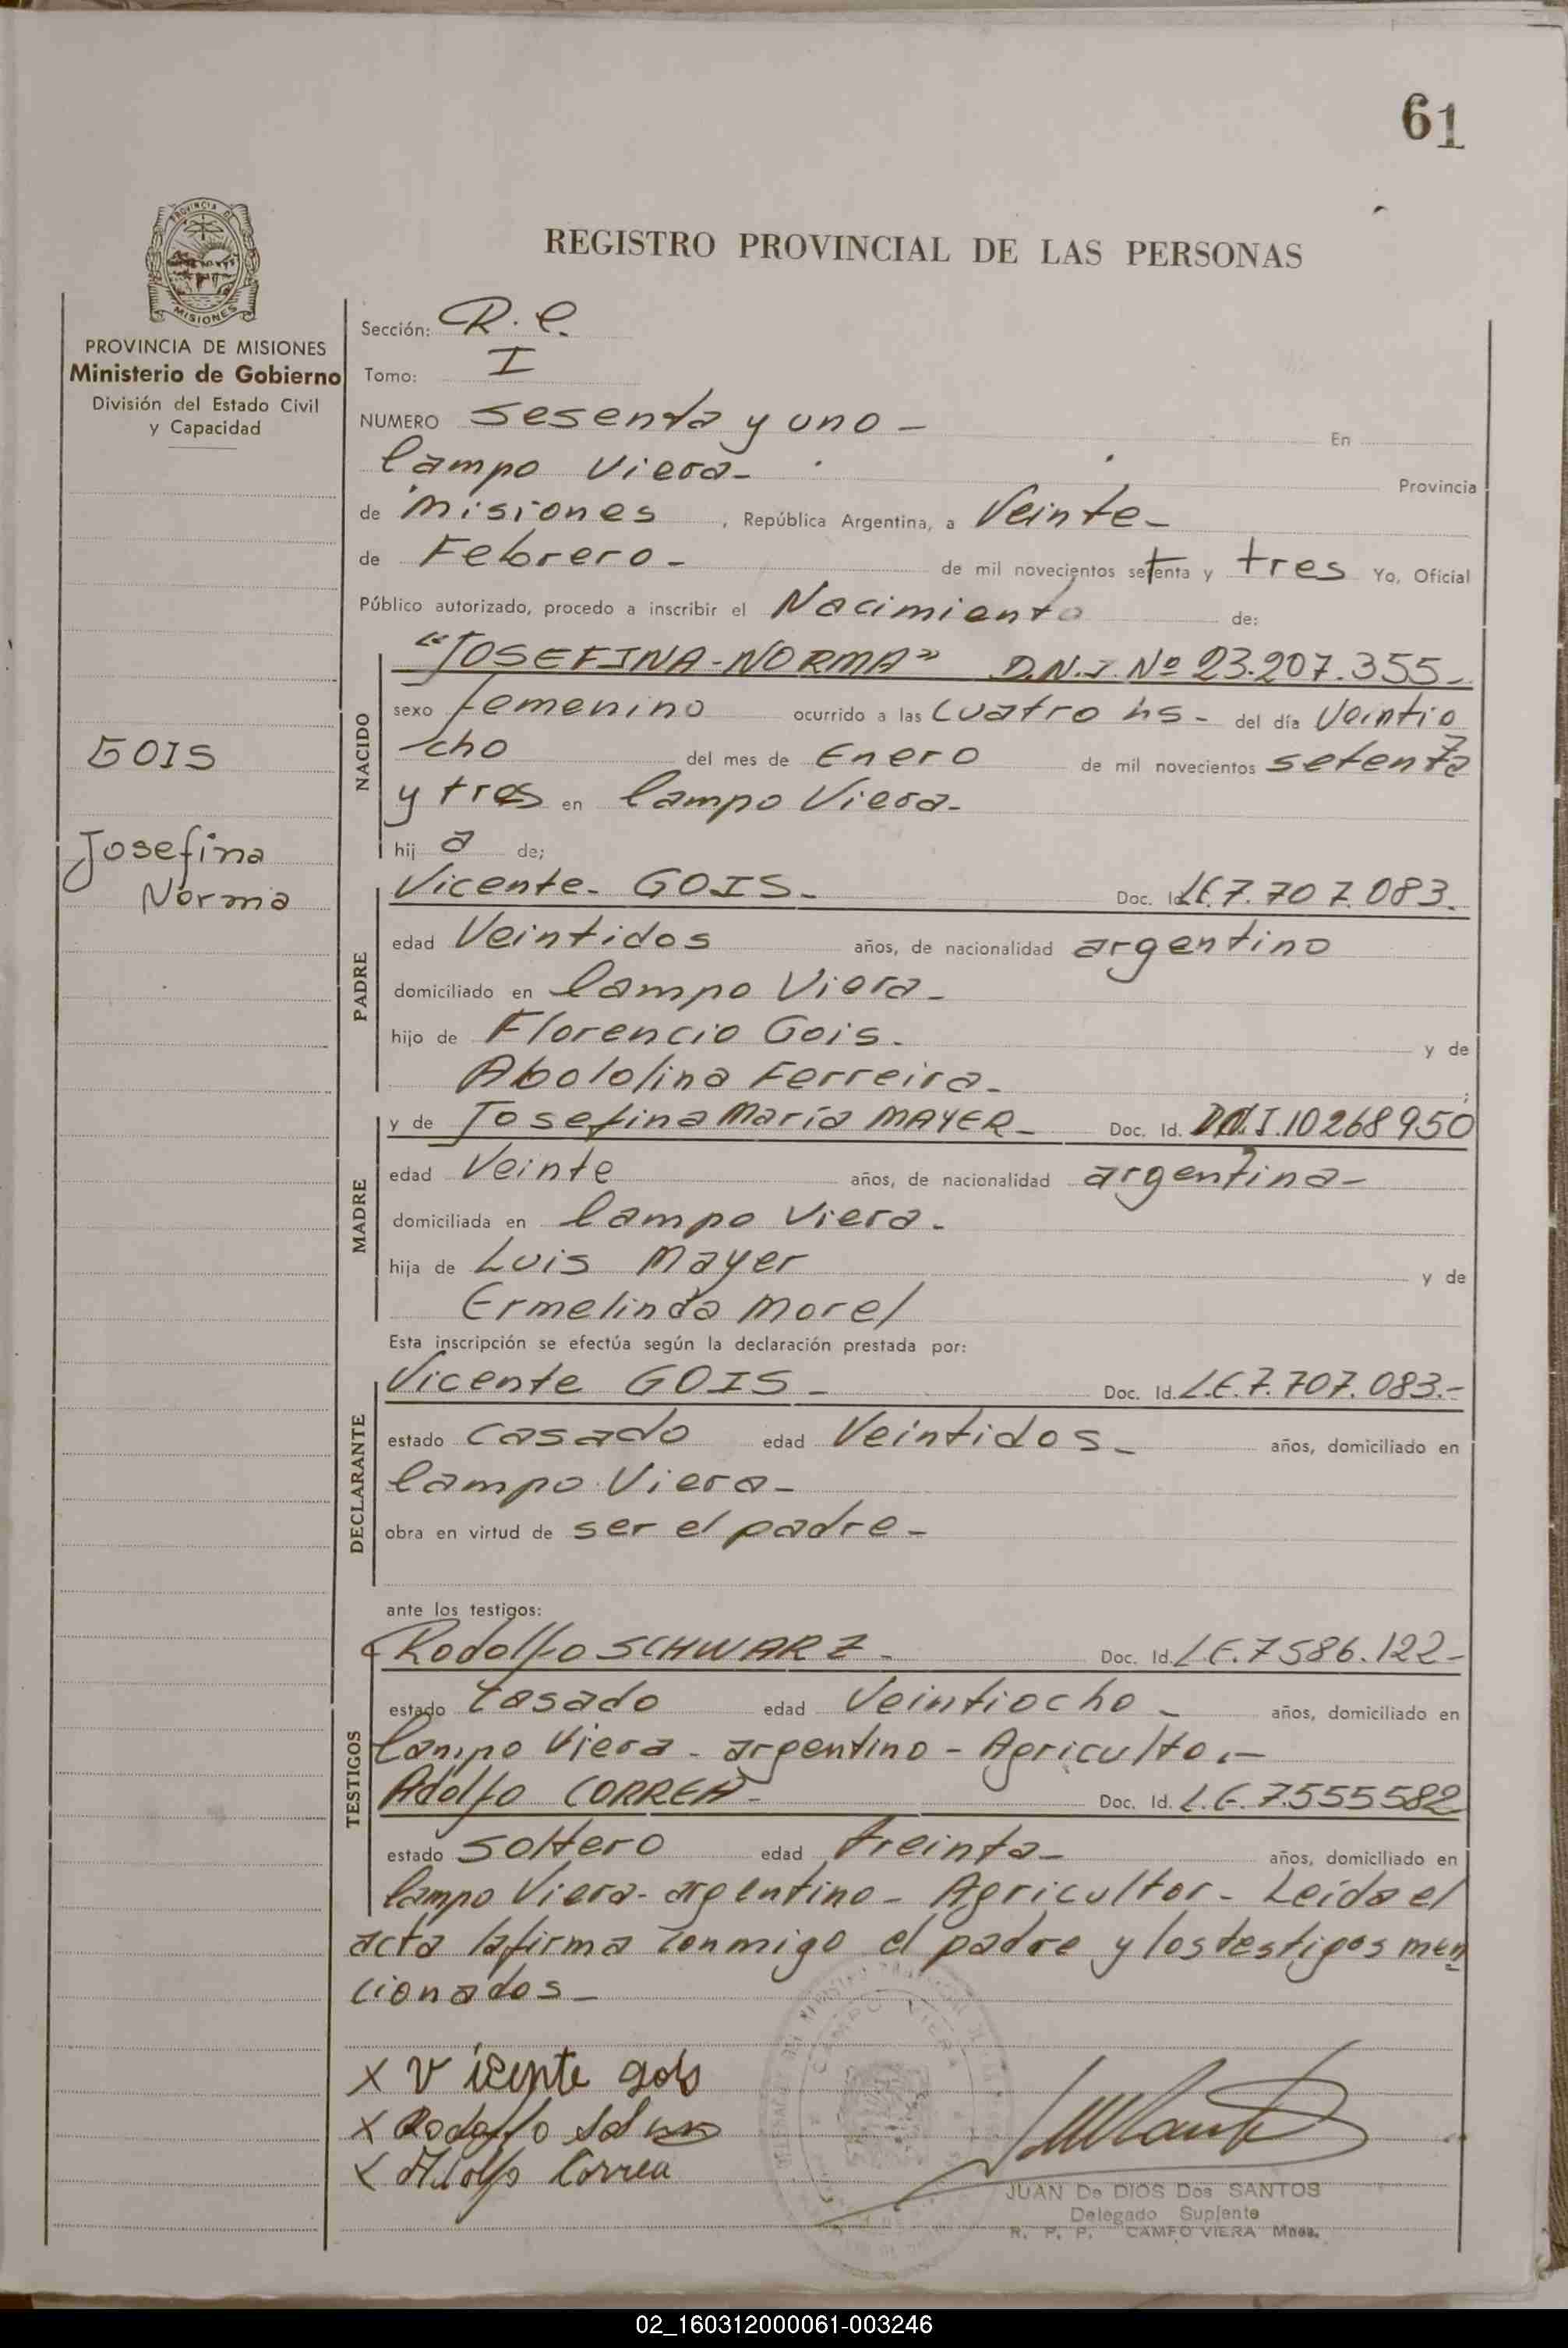 61
REGISTRO PROVINCIAL DE LAS PERSONAS
PROVINCIA DE MISIONES
Ministerio de Gobierno
División del Estado Civil
y Capacidad
GOIS
Josefina
Norma
Sección: R. C.
Tomo: I
NUMERO sesenta y uno - En
Campo Viera- Provincia
de Misiones, República Argentina, a Veinte-
de Febrero- de mil novecientos setenta y tres Yo, Oficial
Público autorizado, procedo a inscribir el Nacimiento de:
"JOSEFINA-NORMA" D.N.I. Nº 23.207.355-
NACIDO
sexo femenino ocurrido a las cuatro hs- del día Veintio
cho del mes de Enero de mil novecientos setenta
y tres en Campo Viera-
hij a de;
PADRE
Vicente- GOIS- Doc. Id. L.E. 7.707.083.
edad Veintidos años, de nacionalidad argentino
domiciliado en Campo Viera-
hijo de Florencio Gois. y de
Abololina Ferreira- ;
MADRE
y de Josefina María MAYER- Doc. Id. D.N.I. 10268950
edad Veinte años, de nacionalidad argentina-
domiciliada en Campo Viera.
hija de Luis Mayer y de
Ermelinda Morel
Esta inscripción se efectúa según la declaración prestada por:
DECLARANTE
Vicente GOIS- Doc. Id. L.E. 7.707.083.-
estado casado edad Veintidos- años, domiciliado en
Campo Viera-
obra en virtud de ser el padre-
ante los testigos:
TESTIGOS
Rodolfo SCHWARZ- Doc. Id. L.E. 7586.122-
estado Casado edad Veintiocho- años, domiciliado en
Campo Viera- argentino- Agricultor-
Adolfo CORREA- Doc. Id. L.E. 7.555582
estado Soltero edad treinta- años, domiciliado en
Campo Viera- argentino- Agricultor- Leída el
acta la firma conmigo el padre y los testigos men
cionados-
X Vicente gois
X Rodolfo
X Adolfo Correa
CAMPO VIERA
JUAN De DIOS Dos SANTOS
Delegado Suplente
R. P. P. CAMPO VIERA Mnes.
02_160312000061-003246